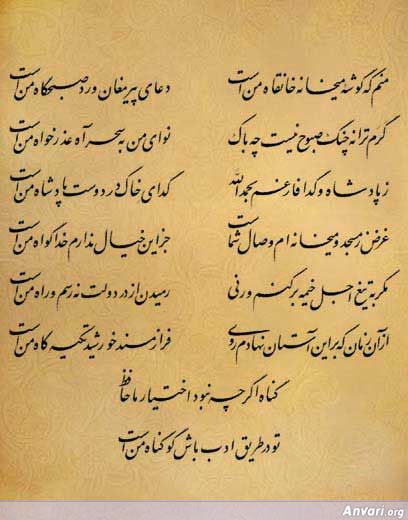 منم که گوشه میخانه خانقاه من است دعای پیر مغان ورد صبحگاه من است
گرم ترانه چنگ صبوح نیست چه باک نوای من به سحر آه عذرخواه من است
ز پادشاه و گدا فارغم بحمدالله گدای خاک در دوست پادشاه من است
غرض ز مسجد و میخانه ام وصال شماست جز این خیال ندارم خدا گواه من است
مگر به تیغ اجل خیمه برکنم ورنی رمیدن از در دولت نه رسم و راه من است
از آن زمان که بر این آستان نهادم روی فراز مسند خورشید تکیه گاه من است
گناه اگرچه نبود اختیار ما حافظ
تو در طریق ادب باش گو گناه من است
Anvari.org